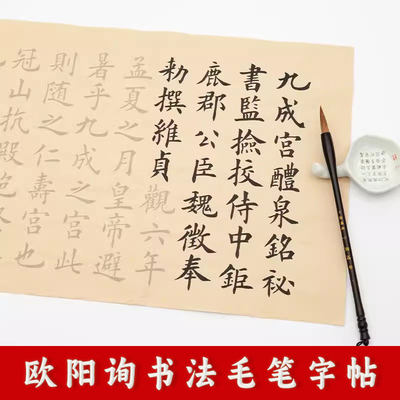 九成宮醴泉銘祕
書監撿挍侍中鉅
鹿郡公臣魏徵奉
勅撰維貞觀六年
孟夏之月皇帝避
暑乎九成之宮此
則随之仁壽宮也
冠山抗殿
欧阳询书法毛笔字帖